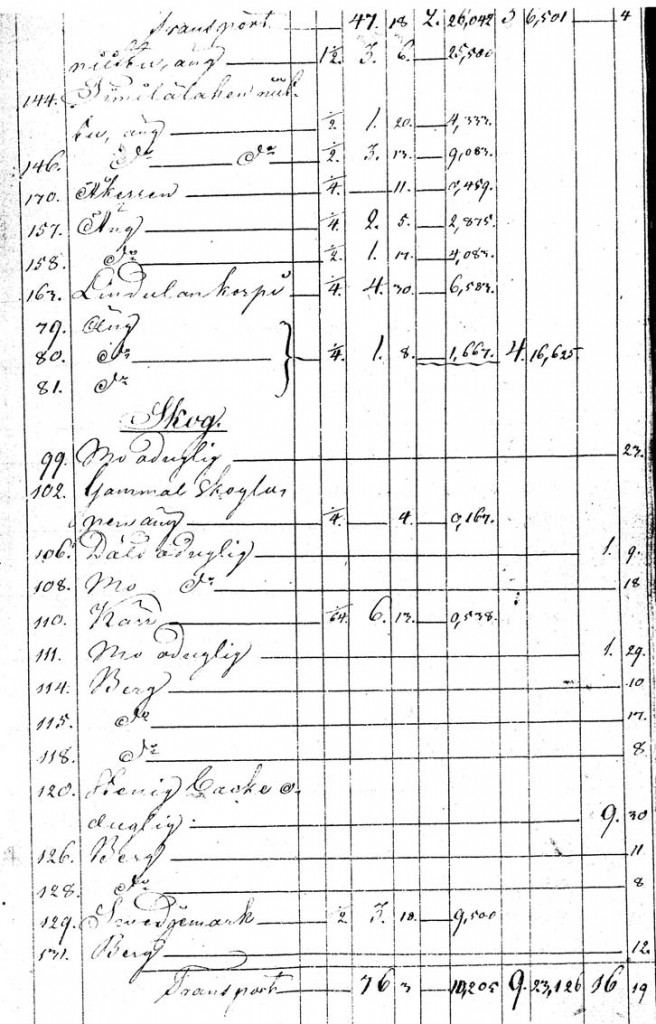 Transport 47. 18 2. 26,042 3 6,501 — 4
niittu, äng — 1/2. 3. 6. — 25,500
144. niit-
tu, äng — 1/2 1. 20. — 4,333.
146. Do — Do — 1/2. 3. 13. — 9,083.
170. Åkerren — 1/4. — 11. — 0,459.
157. Äng — 1/4. 2. 5. — 2,875.
158. Do — 1/2 1. 17. — 4,083.
163. Lindulankorpi — 1/4. 4. 30. — 6,583.
79. Äng
80. Do — 1/4. 1. 8. — 1,667. 4. 16,625.
81. Do
Skog.
99. Mo oduglig — 23.
102. Gammal Skoglus
pers äng — 1/4. — 4. — 0,167.
106. Däld oduglig — 1. 9.
108. Mo Do — 18
110. Kärr — 1/64. 6. 13. — 0,538.
111. Mo oduglig — 1. 29.
114. Berg — 10
115. Do — 17.
118. Do — 8
120. Stenig Backe o-
duglig — 9. 30
126. Berg — 11
128. Do — 8
129. Svedgemark — 1/2 3. 10. — 9,500
131. Berg — 12.
Transport — 76 3 — 10,205 9. 23,126 16 19